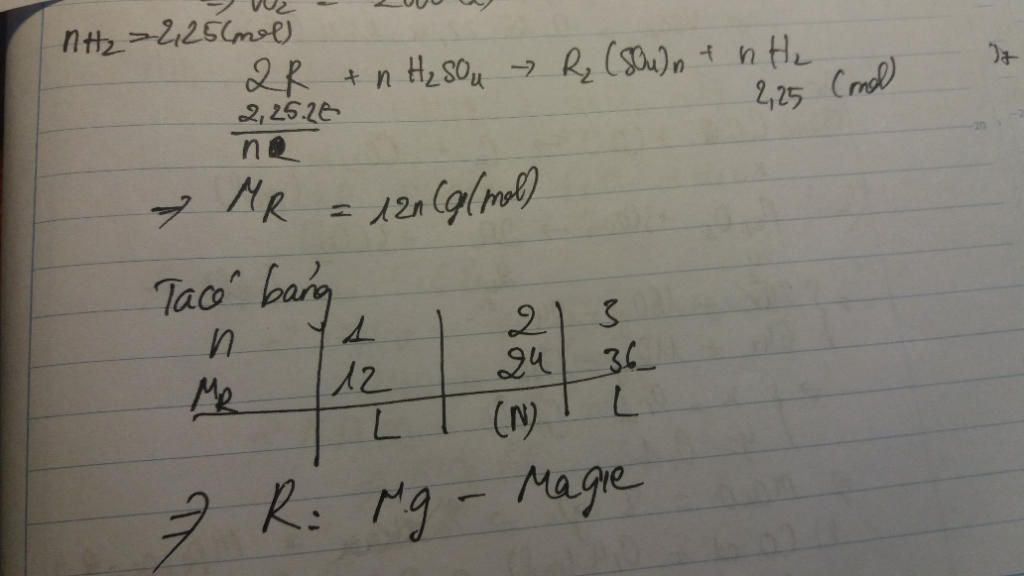 nH₂ = 2,25 (mol)
2R + n H₂SO₄ → R₂(SO₄)n + n H₂
2,25.2 2,25 (mol)
n
⇒ MR = 12n (g/mol)
Ta có bảng
n 1 2 3
MR 12 24 36
L (N) L
⇒ R: Mg - Magie